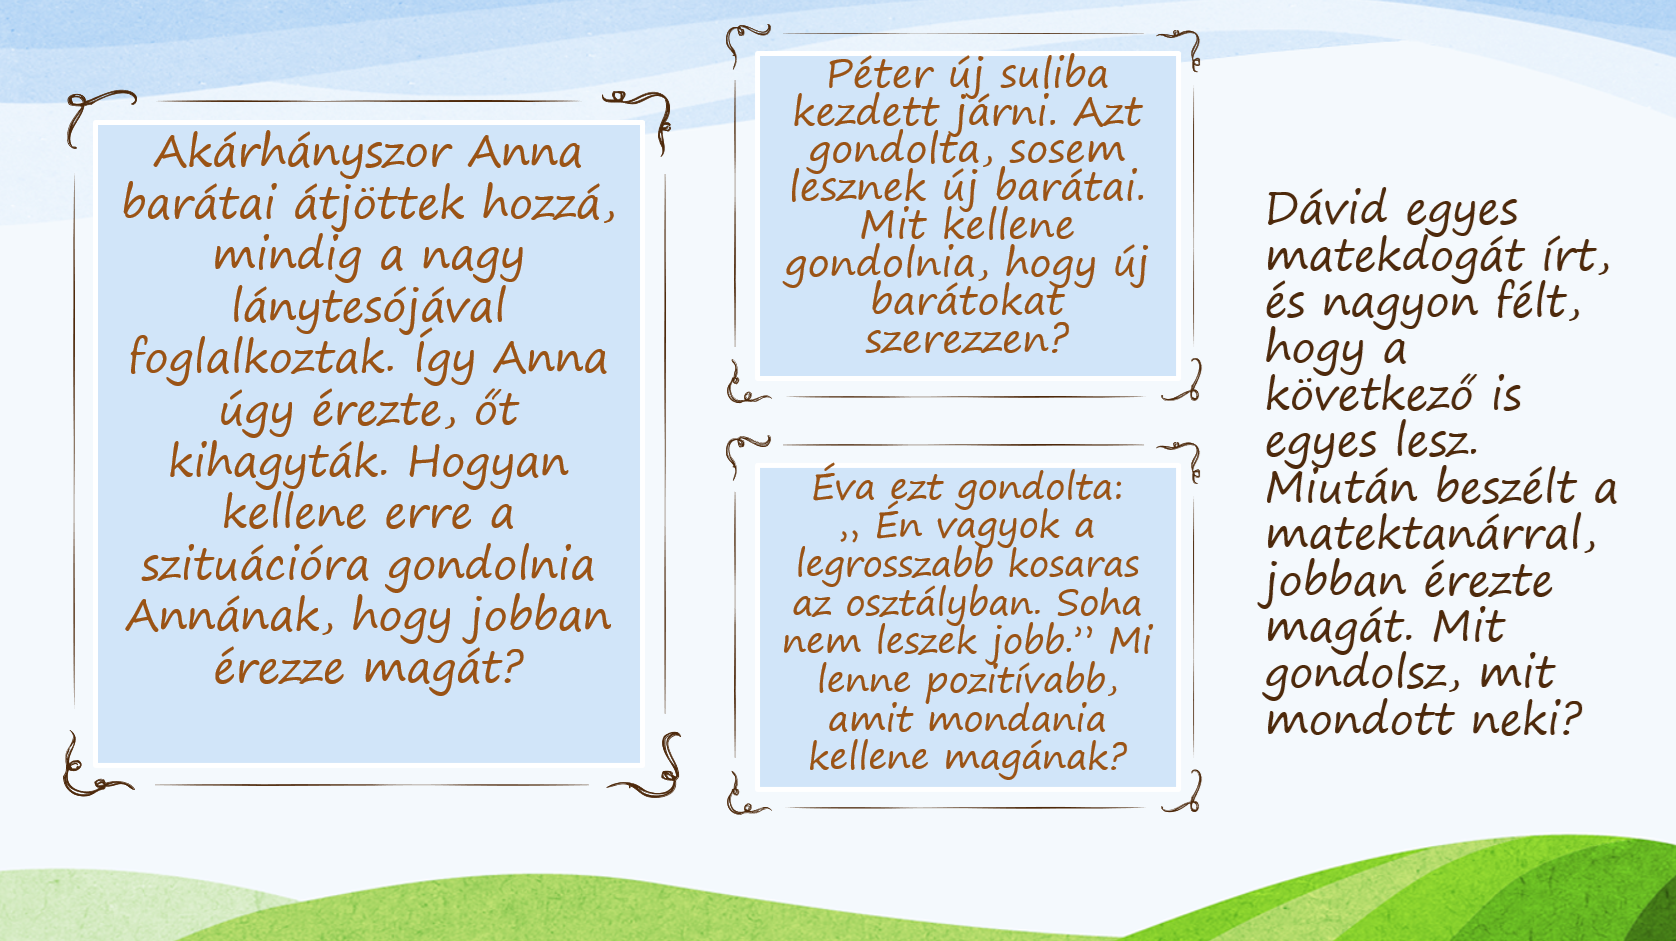 Akárhányszor Anna
barátai átjöttek hozzá,
mindig a nagy
lánytesójával
foglalkoztak. Így Anna
úgy érezte, őt
kihagyták. Hogyan
kellene erre a
szituációra gondolnia
Annának, hogy jobban
érezze magát?
Péter új suliba
kezdett járni. Azt
gondolta, sosem
lesznek új barátai.
Mit kellene
gondolnia, hogy új
barátokat
szerezzen?
Éva ezt gondolta:
,, Én vagyok a
legrosszabb kosaras
az osztályban. Soha
nem leszek jobb.’’ Mi
lenne pozitívabb,
amit mondania
kellene magának?
Dávid egyes
matekdogát írt,
és nagyon félt,
hogy a
következő is
egyes lesz.
Miután beszélt a
matektanárral,
jobban érezte
magát. Mit
gondolsz, mit
mondott neki?